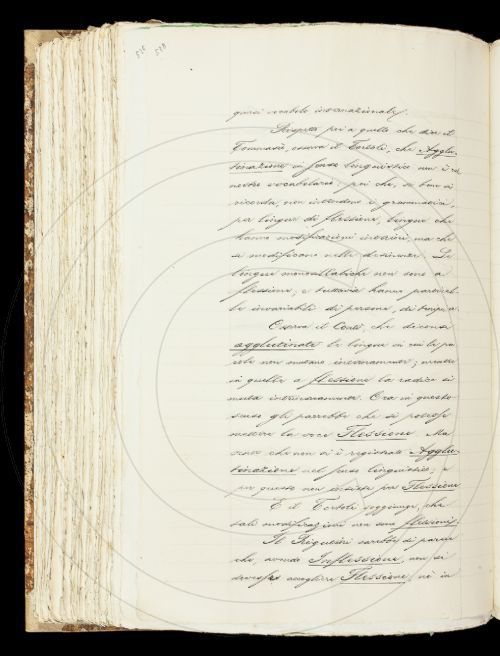 quasi vocabolo internazionale.
Rispetto poi a quello che dice il
Tommasini, osserva il Tortoli, che Agglu-
tinazione in senso linguistico non è re-
nel vocabolario; poi che, se bene si
ricorda, non intendono i grammatici,
per lingue di flessione, lingue che
hanno modificazioni interiori, ma che
si modificano nelle desinenze. Le
lingue monosillabiche non sono a
flessione, e tuttavia hanno particel-
le invariabili di persona, di tempo
Osserva il Conti, che diconsi
agglutinate le lingue in cui le pa-
role non mutano interiormente; mentre
in quelle a flessione la radice si
muta interiormente. Ora in questo
senso gli parrebbe che si potesse
mettere la voce Flessione. Ma
sente che non si è registrato Agglu-
tinazione nel senso linguistico; e
per questo non insiste per Flessione
E il Tortoli soggiunge, che
tali modificazioni non son flessioni.
Il Rigutini sarebbe di parere
che, avendo Inflessione, non si
dovesse accogliere Flessione, nè in